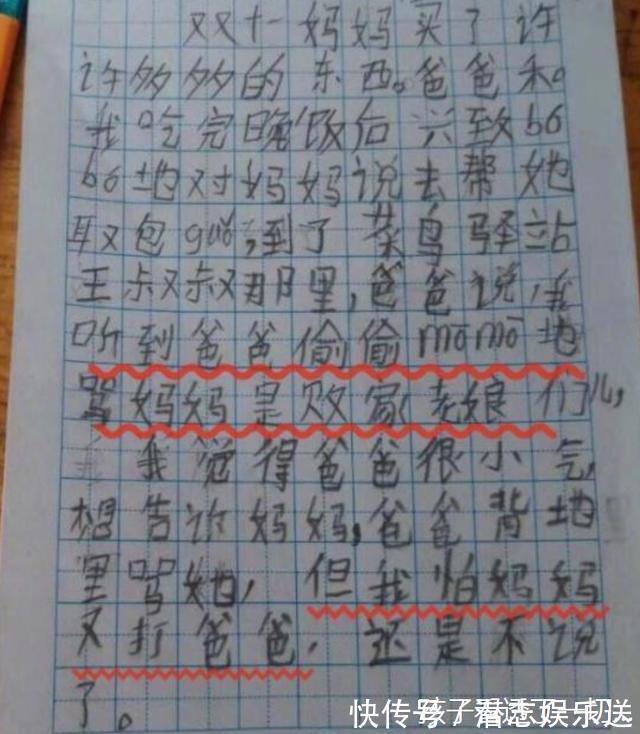 双十一妈妈买了许
许多多的东西。爸爸和
我吃完晚饭后兴致bó
bó地对妈妈说去帮她
取包guǒ,到了菜鸟驿站
王叔叔那里,爸爸说,我
听到爸爸偷偷mōmō地
骂妈妈是败家老娘们儿,
我觉得爸爸很小气,
想告诉妈妈,爸爸背地
里骂她,但我怕妈妈
又打爸爸,还是不说
了。
快传号/潜意娱乐送